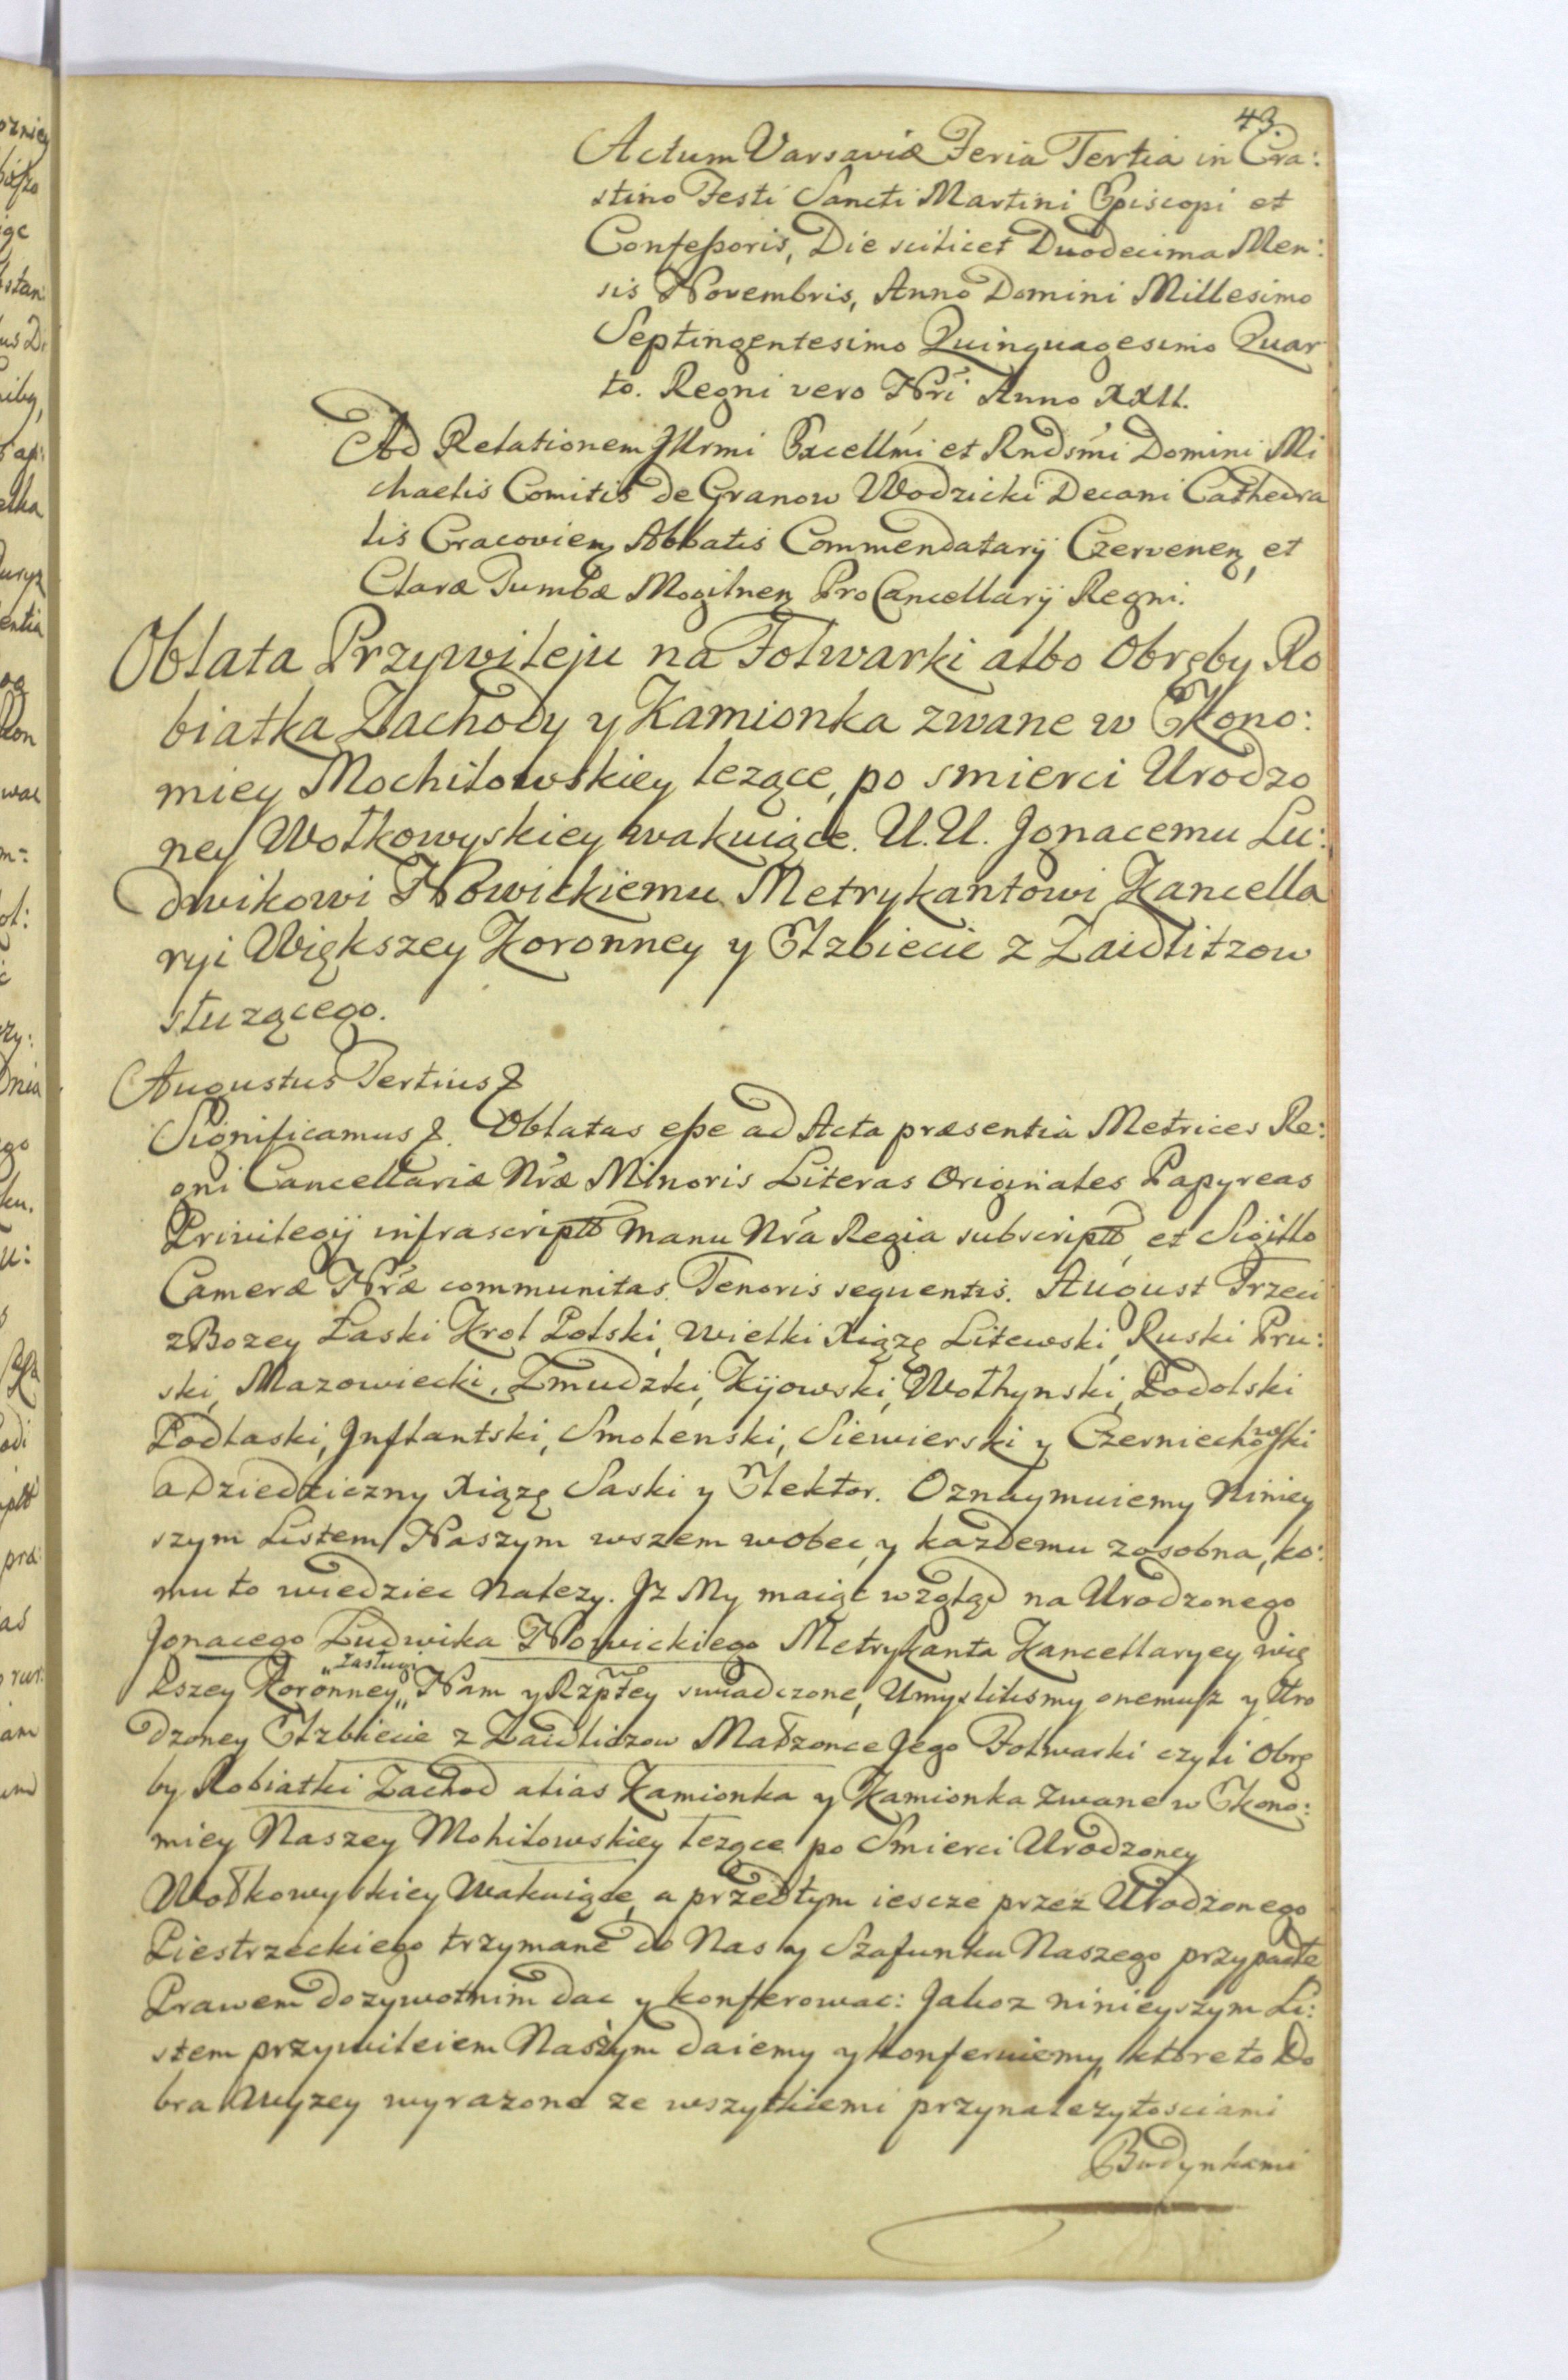 43
Actum Varsaviæ Feria Tertia in Cra:
stino Festi Sancti Martini Episcopi et
Confeßoris, Die scilicet Duodecima Men:
sis Novembris, Anno Domini Millesimo
Septingentesimo Quinquagesimo Quar
to. Regni vero Nrĩ Anno XXII.
Ad Relationem Jllrmi Excellḿi et Rndsḿi Domini Mi
chaelis Comitis de Granow Wodzicki Decani Cathedra
lis Cracovien Abbatis Commendatarÿ Czervenen, et
Claræ Tumbæ Mogilnen ProCancellarÿ Regni.
Oblata Przywileju na Folwarki albo Obręby Ro
biatka Zachody y Kamionka zwane w Ekono:
miey Mochilowskiey lezące, po smierci Urodzo
ney Wołkowyskiey wakuiące. U.U. Jgnacemu Lu:
dwikowi Nowickiemu Metrykantowi Kancella
ryi Większey Koronney y Elzbiecie z Zaidlitzow
słuzącego.
Augustus Tertius &
Significamus &. Oblatas eße ad Acta præsentia Metrices Re:
gni Cancellariæ Nræ Minoris Literas Originales Papyreas
Privilegÿ infrascriptt manu Nrá Regia subscriptt, et Sigillo
Cameræ Nræ communitas. Tenoris sequentis. August Trzeci
z Bozey Łaski Krol Polski, Wielki Xiązę Litewski, Ruski Pru:
ski, Mazowiecki, Zmudzki, Kijowski, Wołhynski, Podolski
Podlaski, Jnflantski, Smolenski, Siewierski y Czerniechowski
a Dziedziczny Xiązę Saski y Elektor. Oznaymuiemy Niniey
szym Listem Naszym wszem wobec, y kazdemu zosobna, ko:
mu to wiedziec Nalezy. Jz My maiąc wzgląd na Urodzonego
Jgnacego Ludwika Nowickiego Metrykanta Kancellaryey wię
kszey Koronney „zasługi„ Nam y Rzpltey swiadczone, Umyslilismy onemusz y Uro
dzoney Elzbiecie z Zaidlidzow Małzonce Jego Folwarki czyli Obrę
by Robiatki Zachod alias Kamionka y Kamionka zwane w Ekono:
miey Naszey Mohilowskiey lezące po Smierci Urodzoney
Wołkowyskiey Wakuiące, a przedtym iescze przez Urodzonego
Piestrzeckiego trzymane do Nas y Szafunku Naszego przypadłe
Prawem dozywotnim dac y konferowac: Jakoz ninieyszym Li:
stem przywileiem Naszym daiemy y konferuiemy, ktore to Do
bra Wyzey wyrazone ze wszytkiemi przynalezytosciami
Budynkami